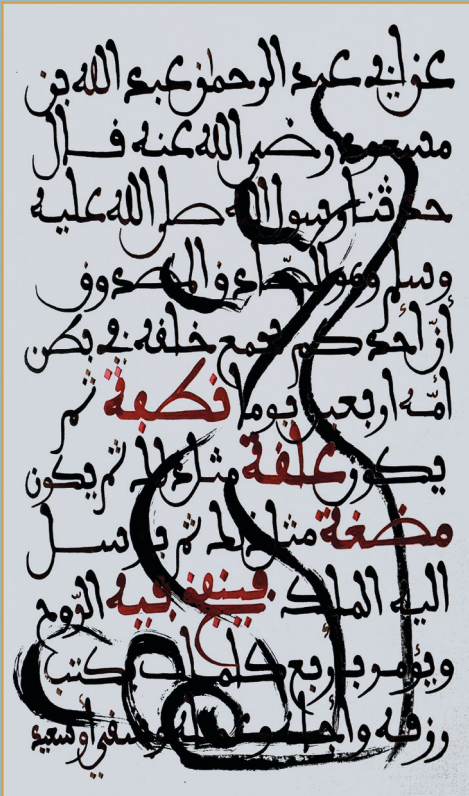 عن أبي عبد الرحمن عبد الله بن
مسعود رضي الله عنه قال
حدثنا رسول الله صلى الله عليه
وسلم وهو الصادق المصدوق
أنّ أحدكم يجمع خلقه في بطن
أمّه اربعين يوما نطفة ثم
يكون علقة مثل ذلك ثم يكون
مضغة مثل ذلك ثم يرسل
اليه الملك فينفخ فيه الرّوح
ويؤمر بأربع كلمات كتب
رزقه وأجله وعمله وشقي أو سعيد